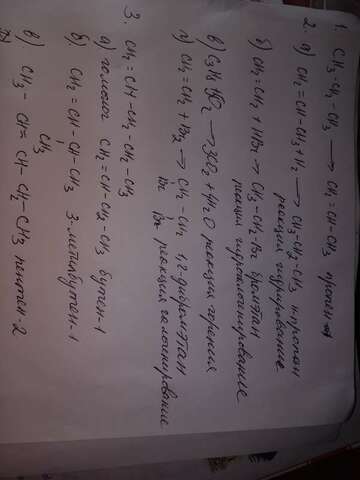 1. CH3-CH2-CH3 → CH2=CH-CH3 пропен
2. а) CH2=CH-CH3+H2 → CH3-CH2-CH3 н.пропан
реакция гидрирование
б) CH2=CH2+HBr → CH3-CH2-Br бромэтан
реакция гидрогалогенирование
в) → 3CO2+4H2O реакция горения
г) CH2=CH2+Br2 → CH2-CH2 1,2-дибромэтан
Br Br реакция галогенирование
3. CH2=CH-CH2-CH2-CH3
а) гомолог CH2=CH-CH2-CH3 бутен-1
б) CH2=CH-CH-CH3 3-метилбутен-1
CH3
в) CH3-CH=CH-CH2-CH3 пентен-2